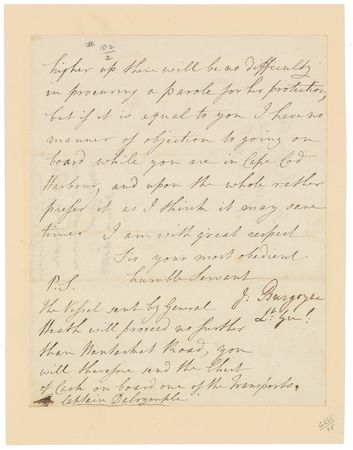 # 102/2
higher up there will be no difficulty
in procuring a parole for her protection,
but if it is equal to you I have no
manner of objection to going on
board while you are in Cape Cod
Harbour, and upon the whole rather
prefer it as I think it may save
time. I am with great respect
Sir your most obedient
humble Servant
J: Burgoyne
Lt. Genl.
P.S.
The Vessel sent by General
Heath will proceed no further
than Nantucket Road, you
will therefore send the Chest
of Cash on board one of the Transports.
Captain Dalrymple.